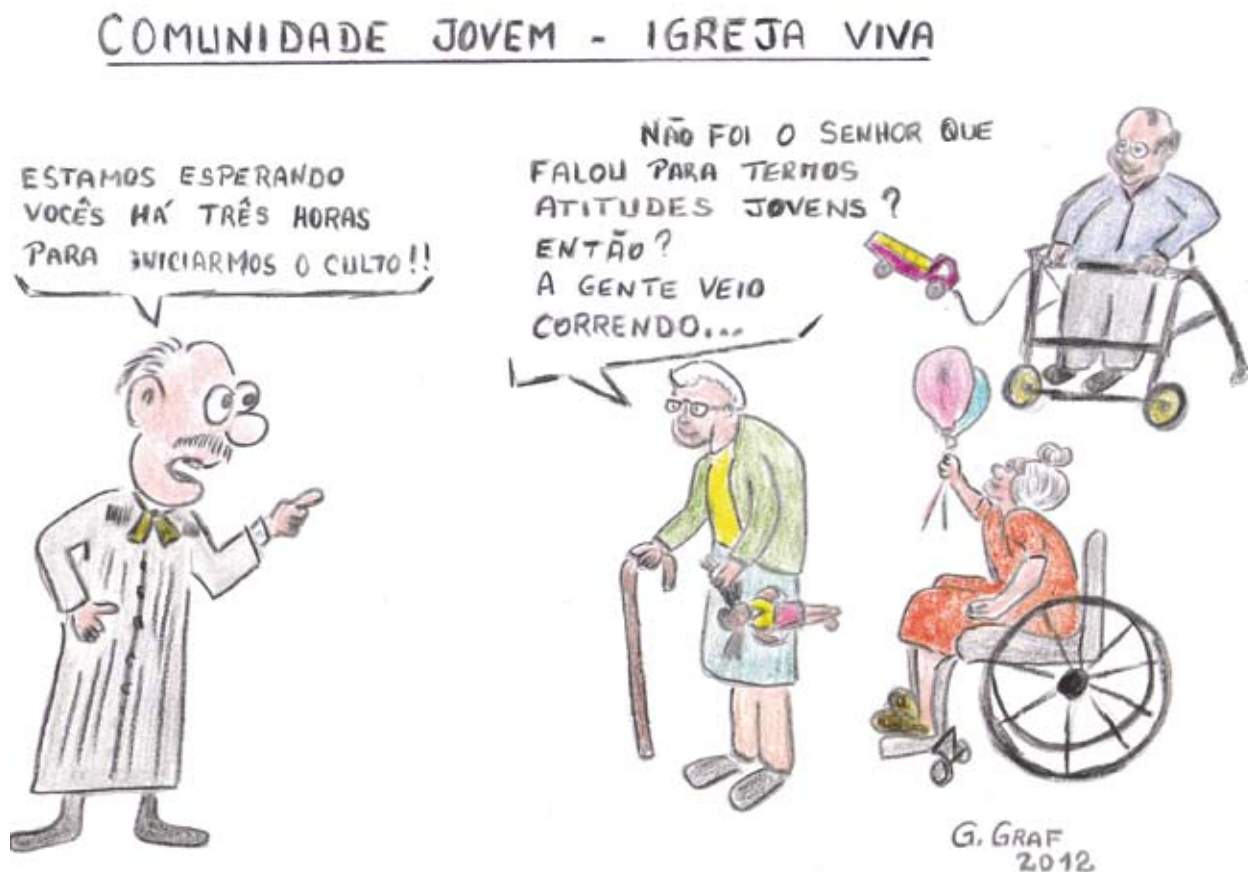 COMUNIDADE JOVEM - IGREJA VIVA
ESTAMOS ESPERANDO
VOCÊS HÁ TRÊS HORAS
PARA INICIARMOS O CULTO!!
NÃO FOI O SENHOR QUE
FALOU PARA TERMOS
ATITUDES JOVENS?
ENTÃO?
A GENTE VEIO
CORRENDO...
G. GRAF
2012